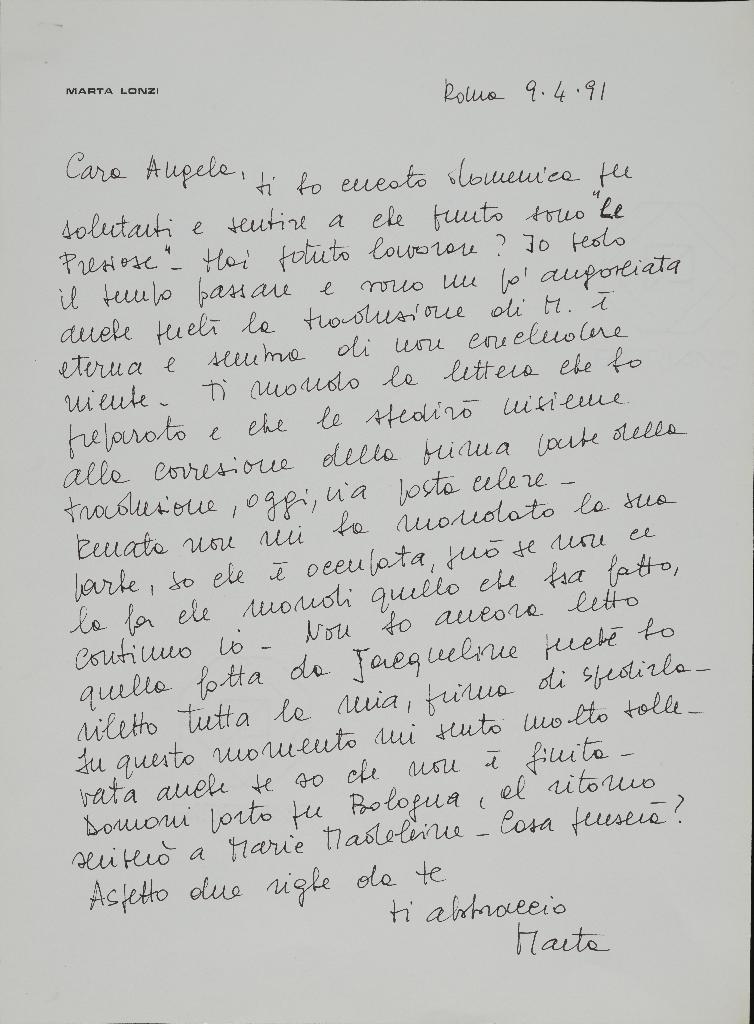 MARTA LONZI
Roma 9.4.91
Cara Angela, ti ho cercato domenica per
salutarti e sentire a che punto sono "Le
Preziose" - Hai potuto lavorare? Io vedo
il tempo passare e sono un po' angosciata
anche perché la traduzione di M. è
eterna e sembra di non concludere
niente - Ti mando la lettera che ho
preparato e che le spedirò insieme
alla correzione della prima parte della
traduzione, oggi, via posta celere -
Renata non mi ha mandato la sua
parte, so che è occupata, però se non ce
la fa che mandi quello che ha fatto,
continuo io - Non ho ancora letto
quella fatta da Jacqueline perché ho
riletto tutta la mia, prima di spedirla -
In questo momento mi sento molto solle-
vata anche se so che non è finita -
Domani parto per Bologna, al ritorno
scriverò a Marie Madeleine - Cosa penserà?
Aspetto due righe da te
ti abbraccio
Marta